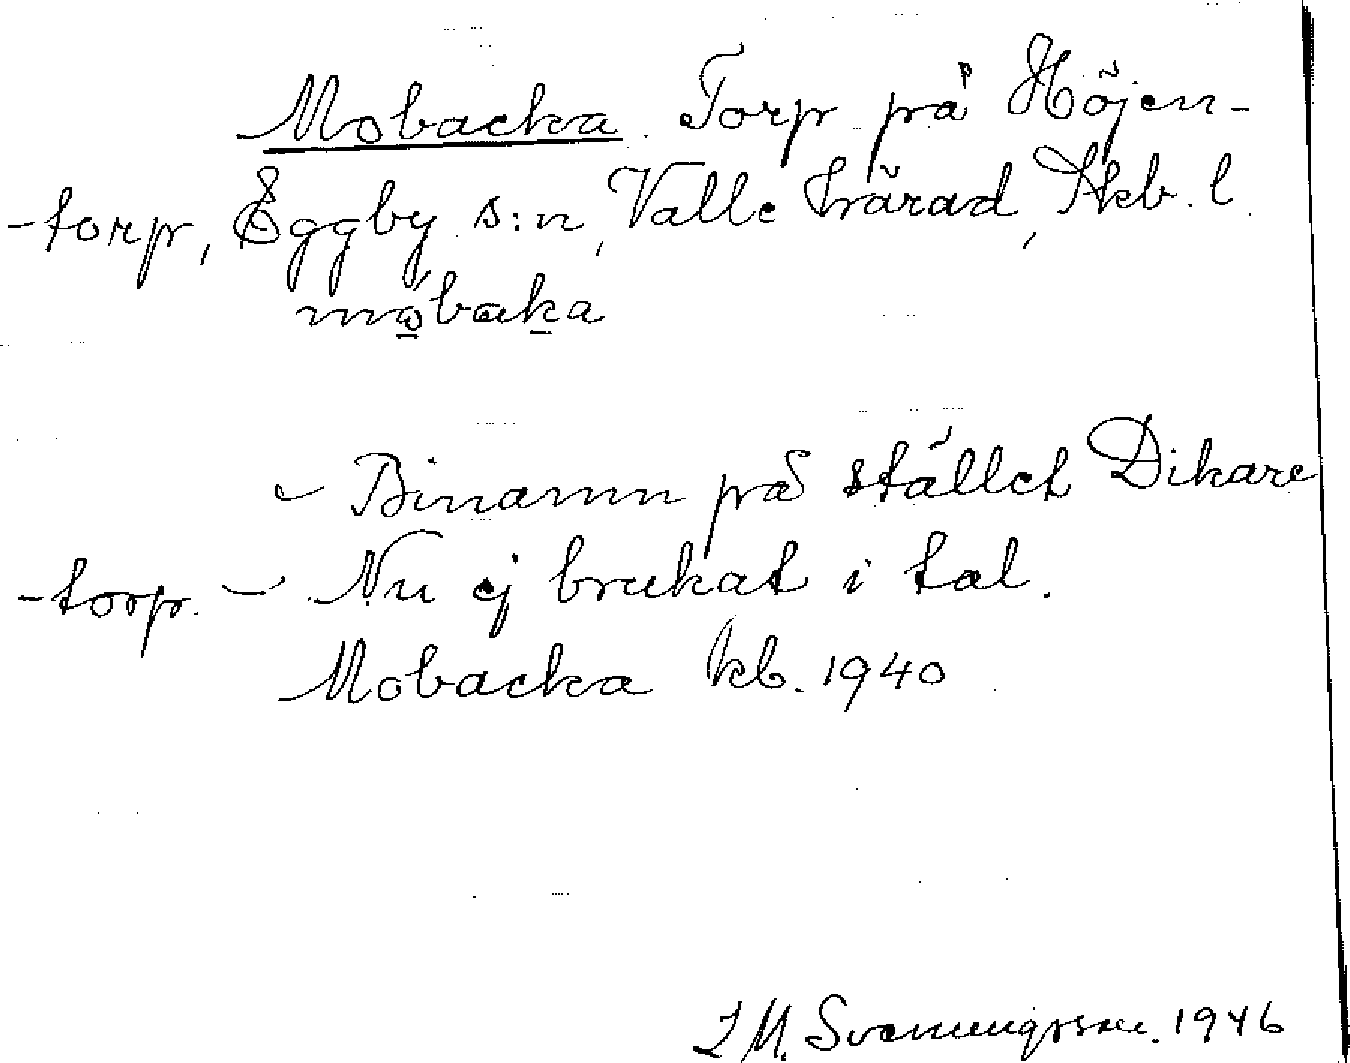 Mobacka. Torp på Höjen-
-torp, Eggby s:n, Valle härad, Skb. l.
mobaka
– Binamn på stället Dikare
-torp. – Nu ej brukat i tal.
Mobacka kb. 1940
M. Svenungsson. 1946